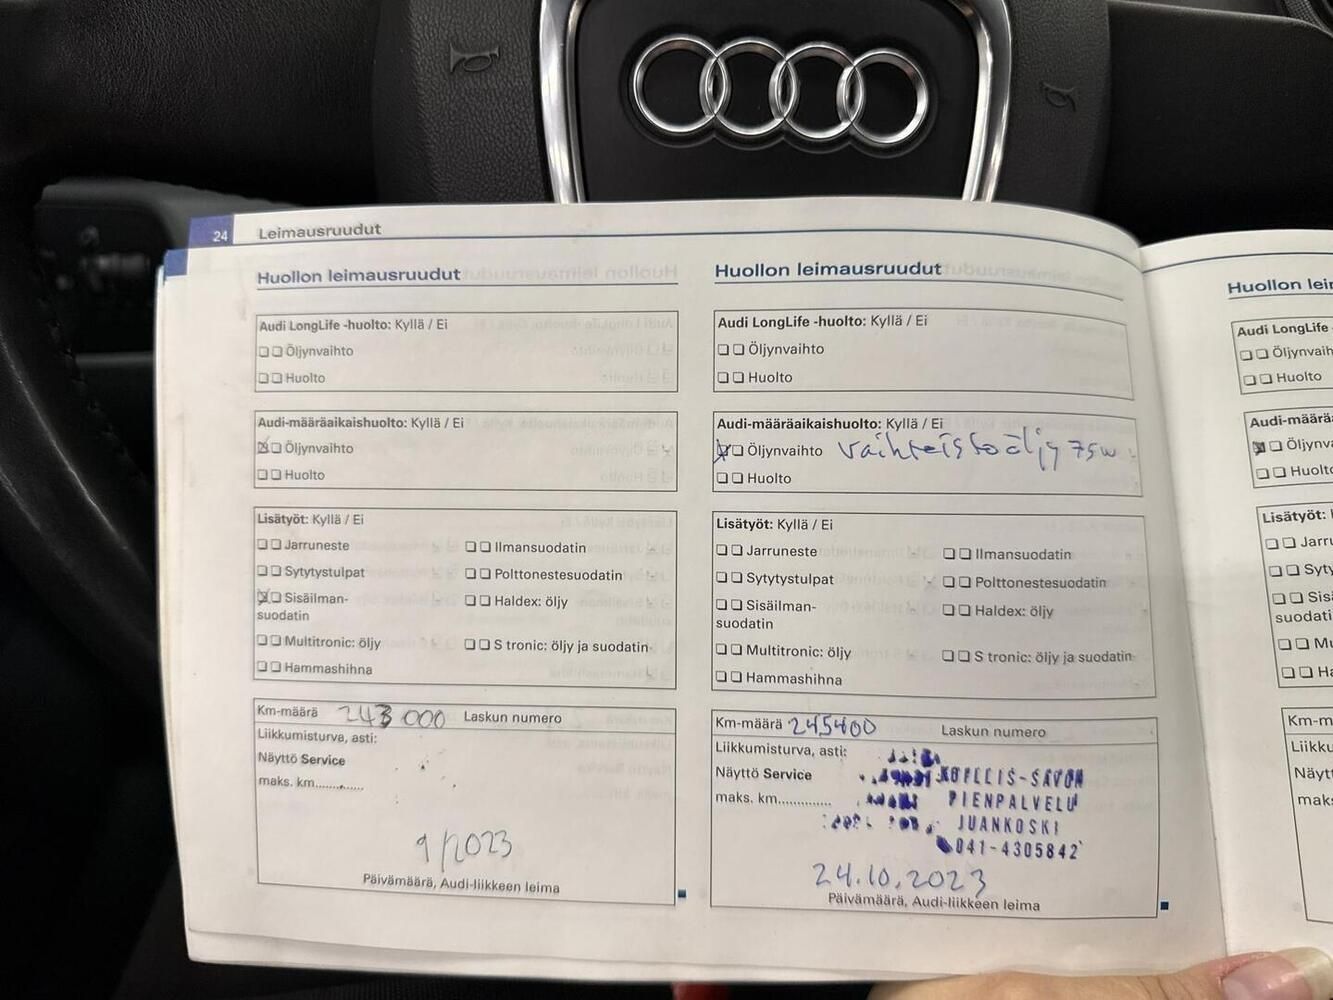 24 Leimausruudut
Huollon leimausruudut
Audi LongLife -huolto: Kyllä / Ei
Öljynvaihto
Huolto
Audi-määräaikaishuolto: Kyllä / Ei
Öljynvaihto
Huolto
Lisätyöt: Kyllä / Ei
Jarruneste
Ilmansuodatin
Sytytystulpat
Polttonestesuodatin
Sisäilman-
suodatin
Haldex: öljy
Multitronic: öljy
S tronic: öljy ja suodatin
Hammashihna
Km-määrä 243 000 Laskun numero
Liikkumisturva, asti:
Näyttö Service
maks. km.............
9/2023
Päivämäärä, Audi-liikkeen leima
Huollon leimausruudut
Audi LongLife -huolto: Kyllä / Ei
Öljynvaihto
Huolto
Audi-määräaikaishuolto: Kyllä / Ei
Öljynvaihto vaihteistoöljy 75w
Huolto
Lisätyöt: Kyllä / Ei
Jarruneste
Ilmansuodatin
Sytytystulpat
Polttonestesuodatin
Sisäilman-
suodatin
Haldex: öljy
Multitronic: öljy
S tronic: öljy ja suodatin
Hammashihna
Km-määrä 245400 Laskun numero
Liikkumisturva, asti:
Näyttö Service
maks. km.............
KOILLIS-SAVON
PIENPALVELU
JUANKOSKI
041-4305842
24.10.2023
Päivämäärä, Audi-liikkeen leima
Huollon lei
Audi LongLife -
Öljynvaih
Huolto
Audi-määrä
Öljynv
Huolto
Lisätyöt:
Jarru
Syty
Sisä
suodati
Mu
Ha
Km-m
Liikku
Näyt
maks